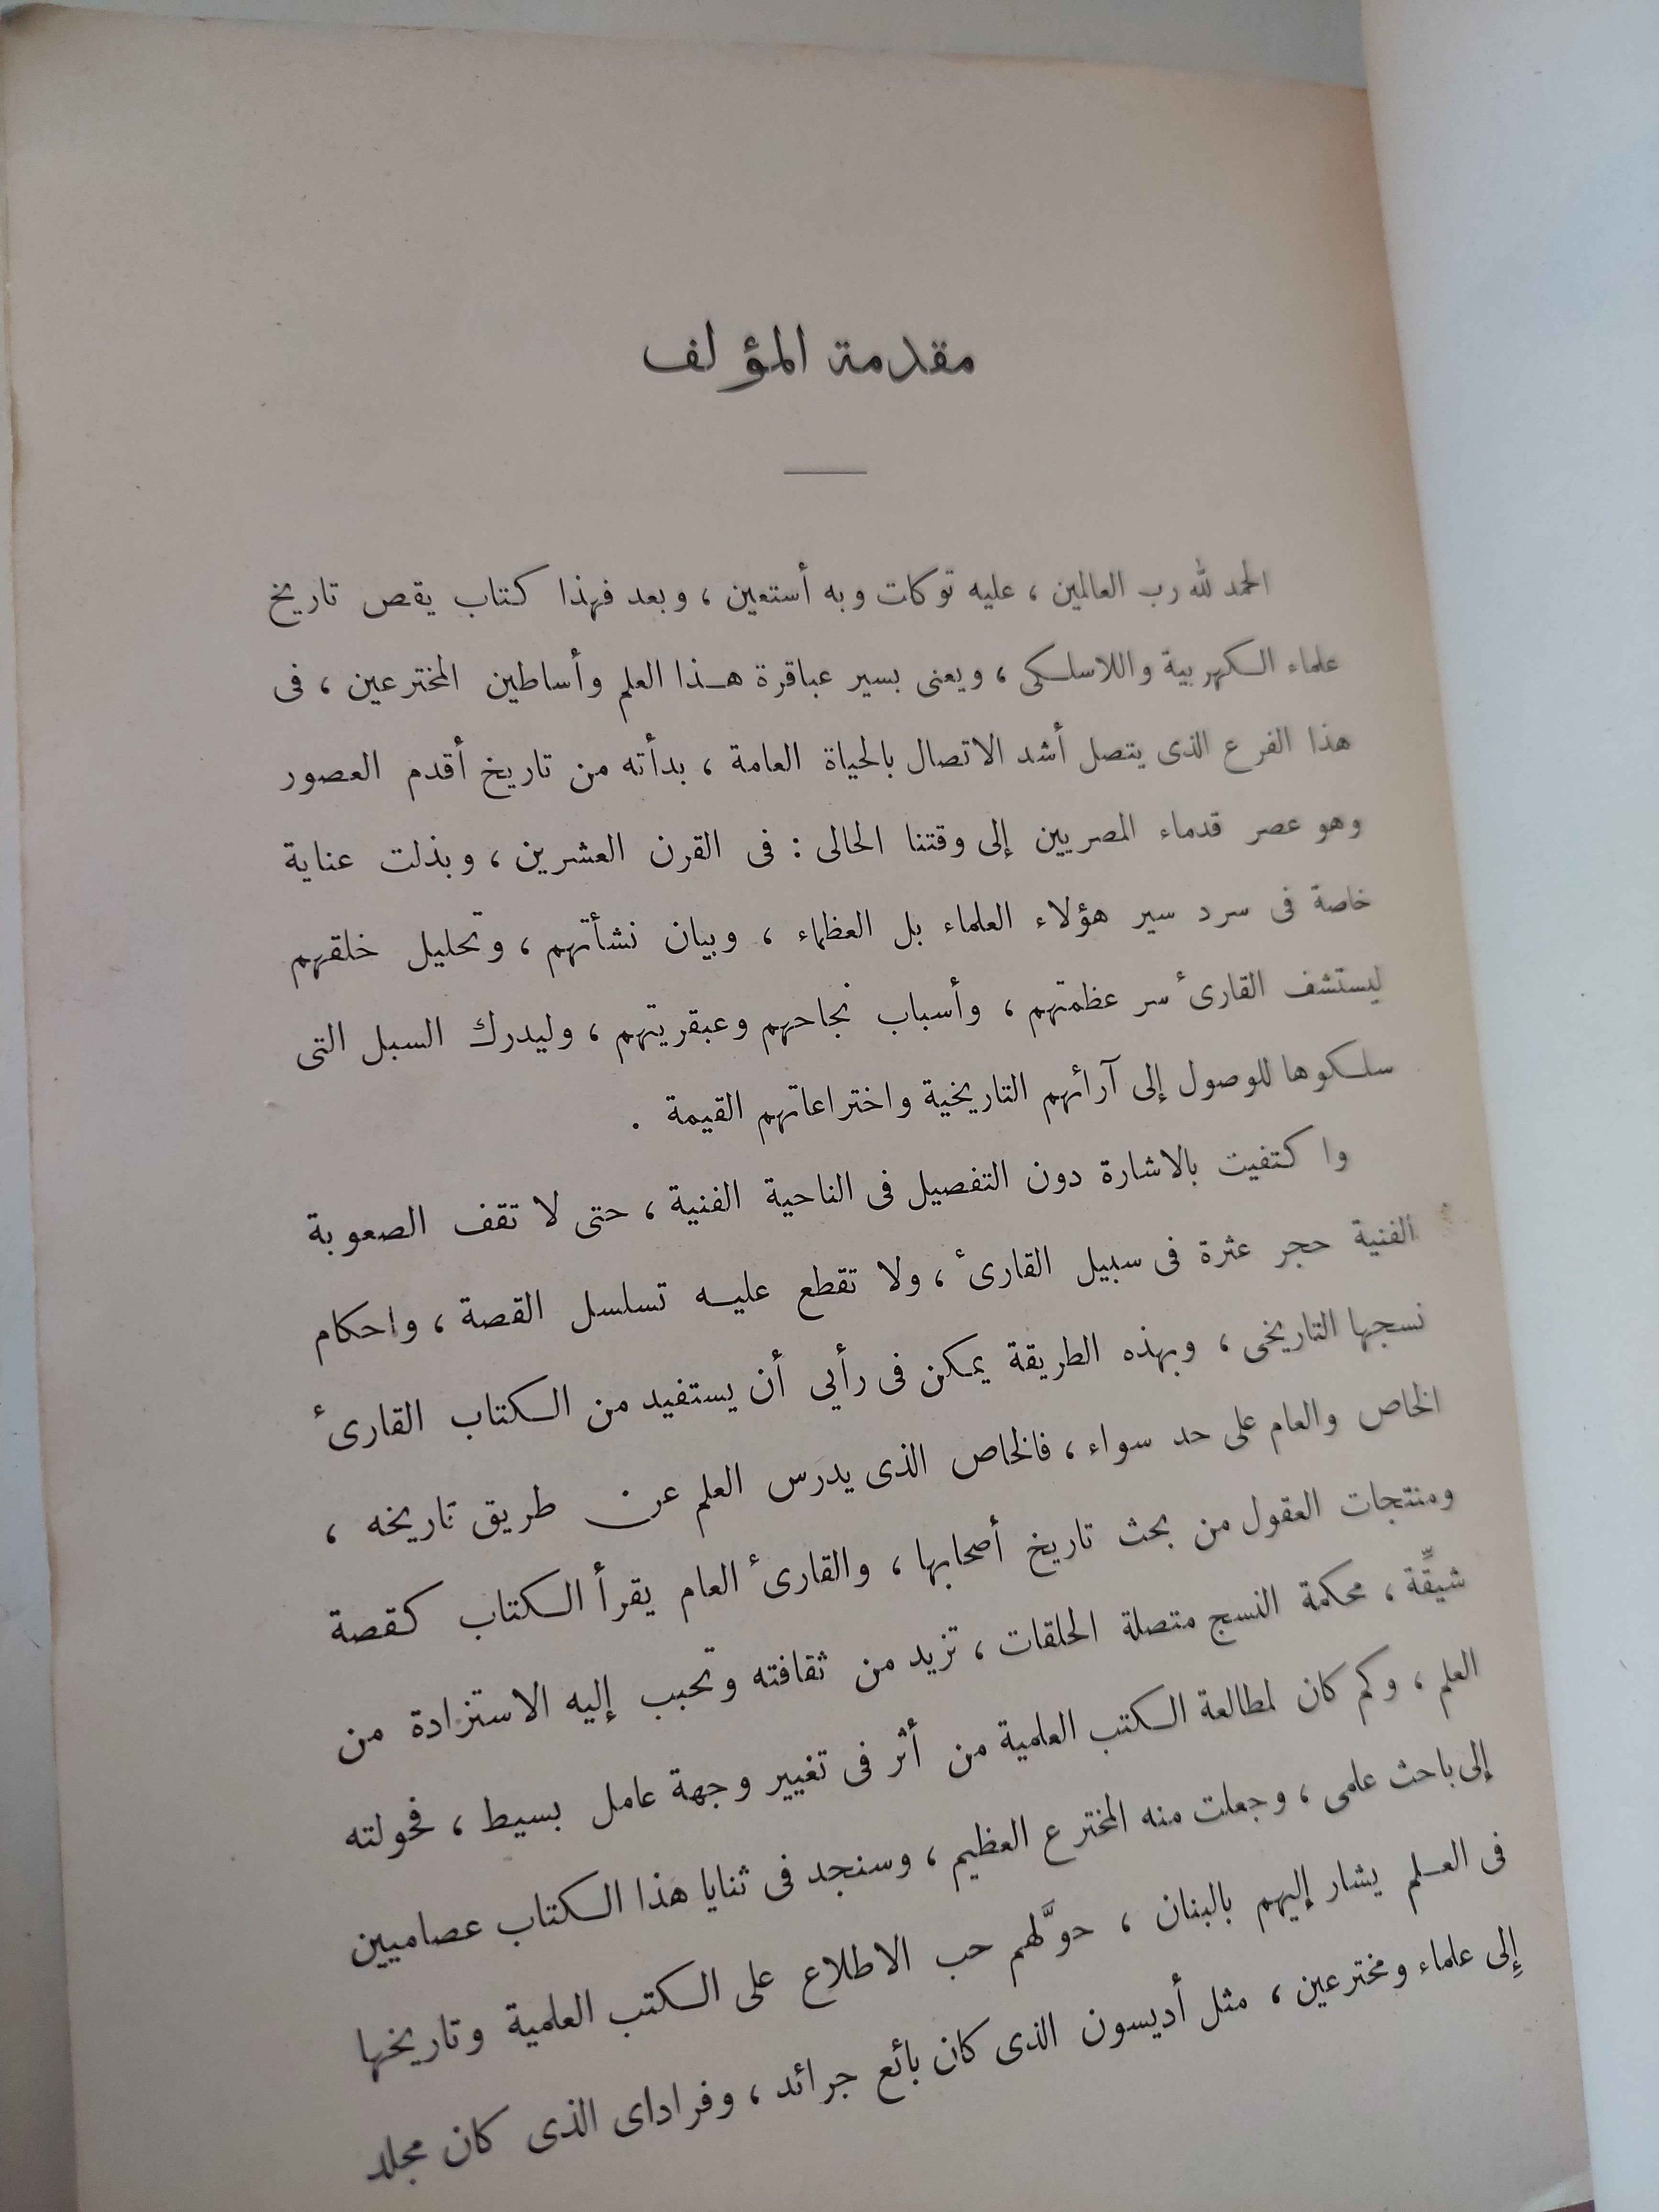 مقدمة المؤلف
الحمد لله رب العالمين ، عليه توكلت وبه أستعين ، وبعد فهذا كتاب يقص تاريخ
علماء الكهربية واللاسلكى ، ويعنى بسير عباقرة هذا العلم وأساطين المخترعين ، فى
هذا الفرع الذى يتصل أشد الاتصال بالحياة العامة ، بدأته من تاريخ أقدم العصور
وهو عصر قدماء المصريين إلى وقتنا الحالى : فى القرن العشرين ، وبذلت عناية
خاصة فى سرد سير هؤلاء العلماء بل العظماء ، وبيان نشأتهم ، وتحليل خلقهم
ليستشف القارئ سر عظمتهم ، وأسباب نجاحهم وعبقريتهم ، وليدرك السبل التى
سلكوها للوصول إلى آرائهم التاريخية واختراعاتهم القيمة .
واكتفيت بالاشارة دون التفصيل فى الناحية الفنية ، حتى لا تقف الصعوبة
الفنية حجر عثرة فى سبيل القارئ ، ولا تقطع عليه تسلسل القصة ، واحكام
نسجها التاريخى ، وبهذه الطريقة يمكن فى رأيى أن يستفيد من الكتاب القارئ
الخاص والعام على حد سواء ، فالخاص الذى يدرس العلم عن طريق تاريخه ،
ومنتجات العقول من بحث تاريخ أصحابها ، والقارئ العام يقرأ الكتاب كقصة
شيقِّة ، محكمة النسج متصلة الحلقات ، تزيد من ثقافته وتحبب إليه الاستزادة من
العلم ، وكم كان لمطالعة الكتب العلمية من أثر فى تغيير وجهة عامل بسيط ، فحولته
إلى باحث علمى ، وجعلت منه المخترع العظيم ، وسنجد فى ثنايا هذا الكتاب عصاميين
فى العلم يشار إليهم بالبنان ، حوَّلهم حب الاطلاع على الكتب العلمية وتاريخها
إِلى علماء ومخترعين ، مثل أديسون الذى كان بائع جرائد ، وفراداى الذى كان مجلد